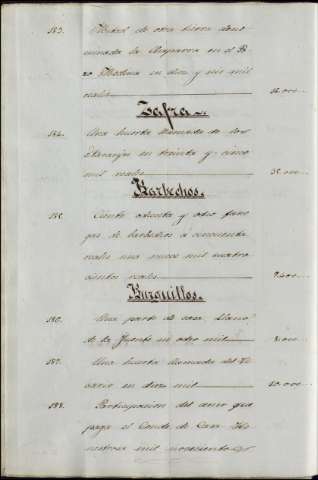 183. Mitad de otra tierra deno-
minada la Chaparra en el
Medina en diez y seis mil
reales 16.000
Zafra
184. Una huerta llamada de los
Naranjos en treinta y cinco
mil reales 35.000
Barbechos.
185. Ciento ochenta y ocho fane-
gas de barbechos á cincuenta
reales una nueve mil cuatro-
cientos reales 9.400
Burguillos.
186. Una parte de casa plano
de la Fuente en ocho mil 8.000
187. Una huerta llamada del
en diez mil 10.000
188. Participacion del censo que
paga el Conde de Casa He-
nestrosa mil novecientos